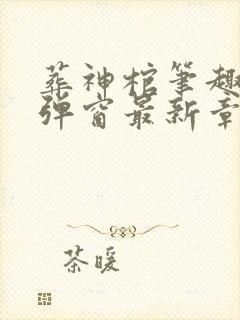 葬神棺笔趣
弹窗最新章
茶暖